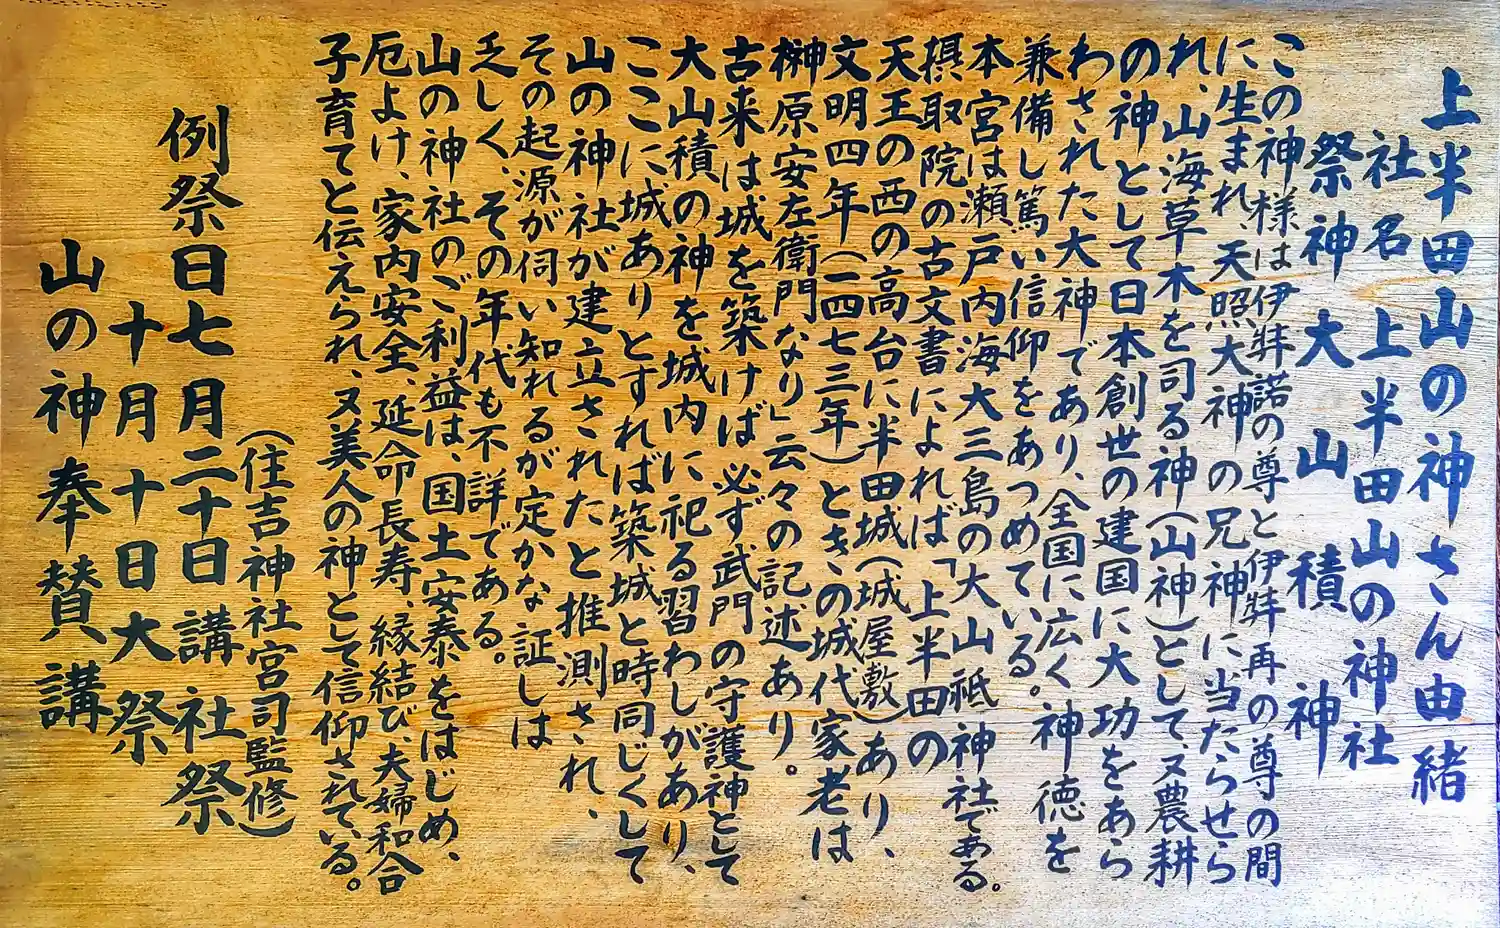 上半田山の神さん由緒
社名 上半田山の神社
祭神 大山積神
この神様は伊弉諾の尊と伊弉再の尊の間
に生まれ、天照大神の兄神に当たらせら
れ、山海草木を司る神(山神)として、又農耕
の神として日本創世の建国に大功をあら
わされた大神であり、全国に広く神徳を
兼備し篤い信仰をあつめている。
本宮は瀬戸内海大三島の大山祗神社である。
摂取院の古文書によれば「上半田の
天王の西の高台に半田城(城屋敷)あり、
文明四年(一四七三年)ときの城代家老は
榊原安左衛門なり」云々の記述あり。
古来は城を築けば必ず武門の守護神として
大山積の神を城内に祀る習わしがあり、
ここに城ありとすれば築城と時同じくして
山の神社が建立されたと推測され、
その起源が伺い知れるが定かな証しは
乏しく、その年代も不詳である。
山の神社のご利益は、国土安泰をはじめ、
厄よけ、家内安全、延命長寿、縁結び、夫婦和合
子育てと伝えられ、又美人の神として信仰されている。
(住吉神社宮司監修)
例祭日七月二十日講社祭
十月十日大祭
山の神奉賛講